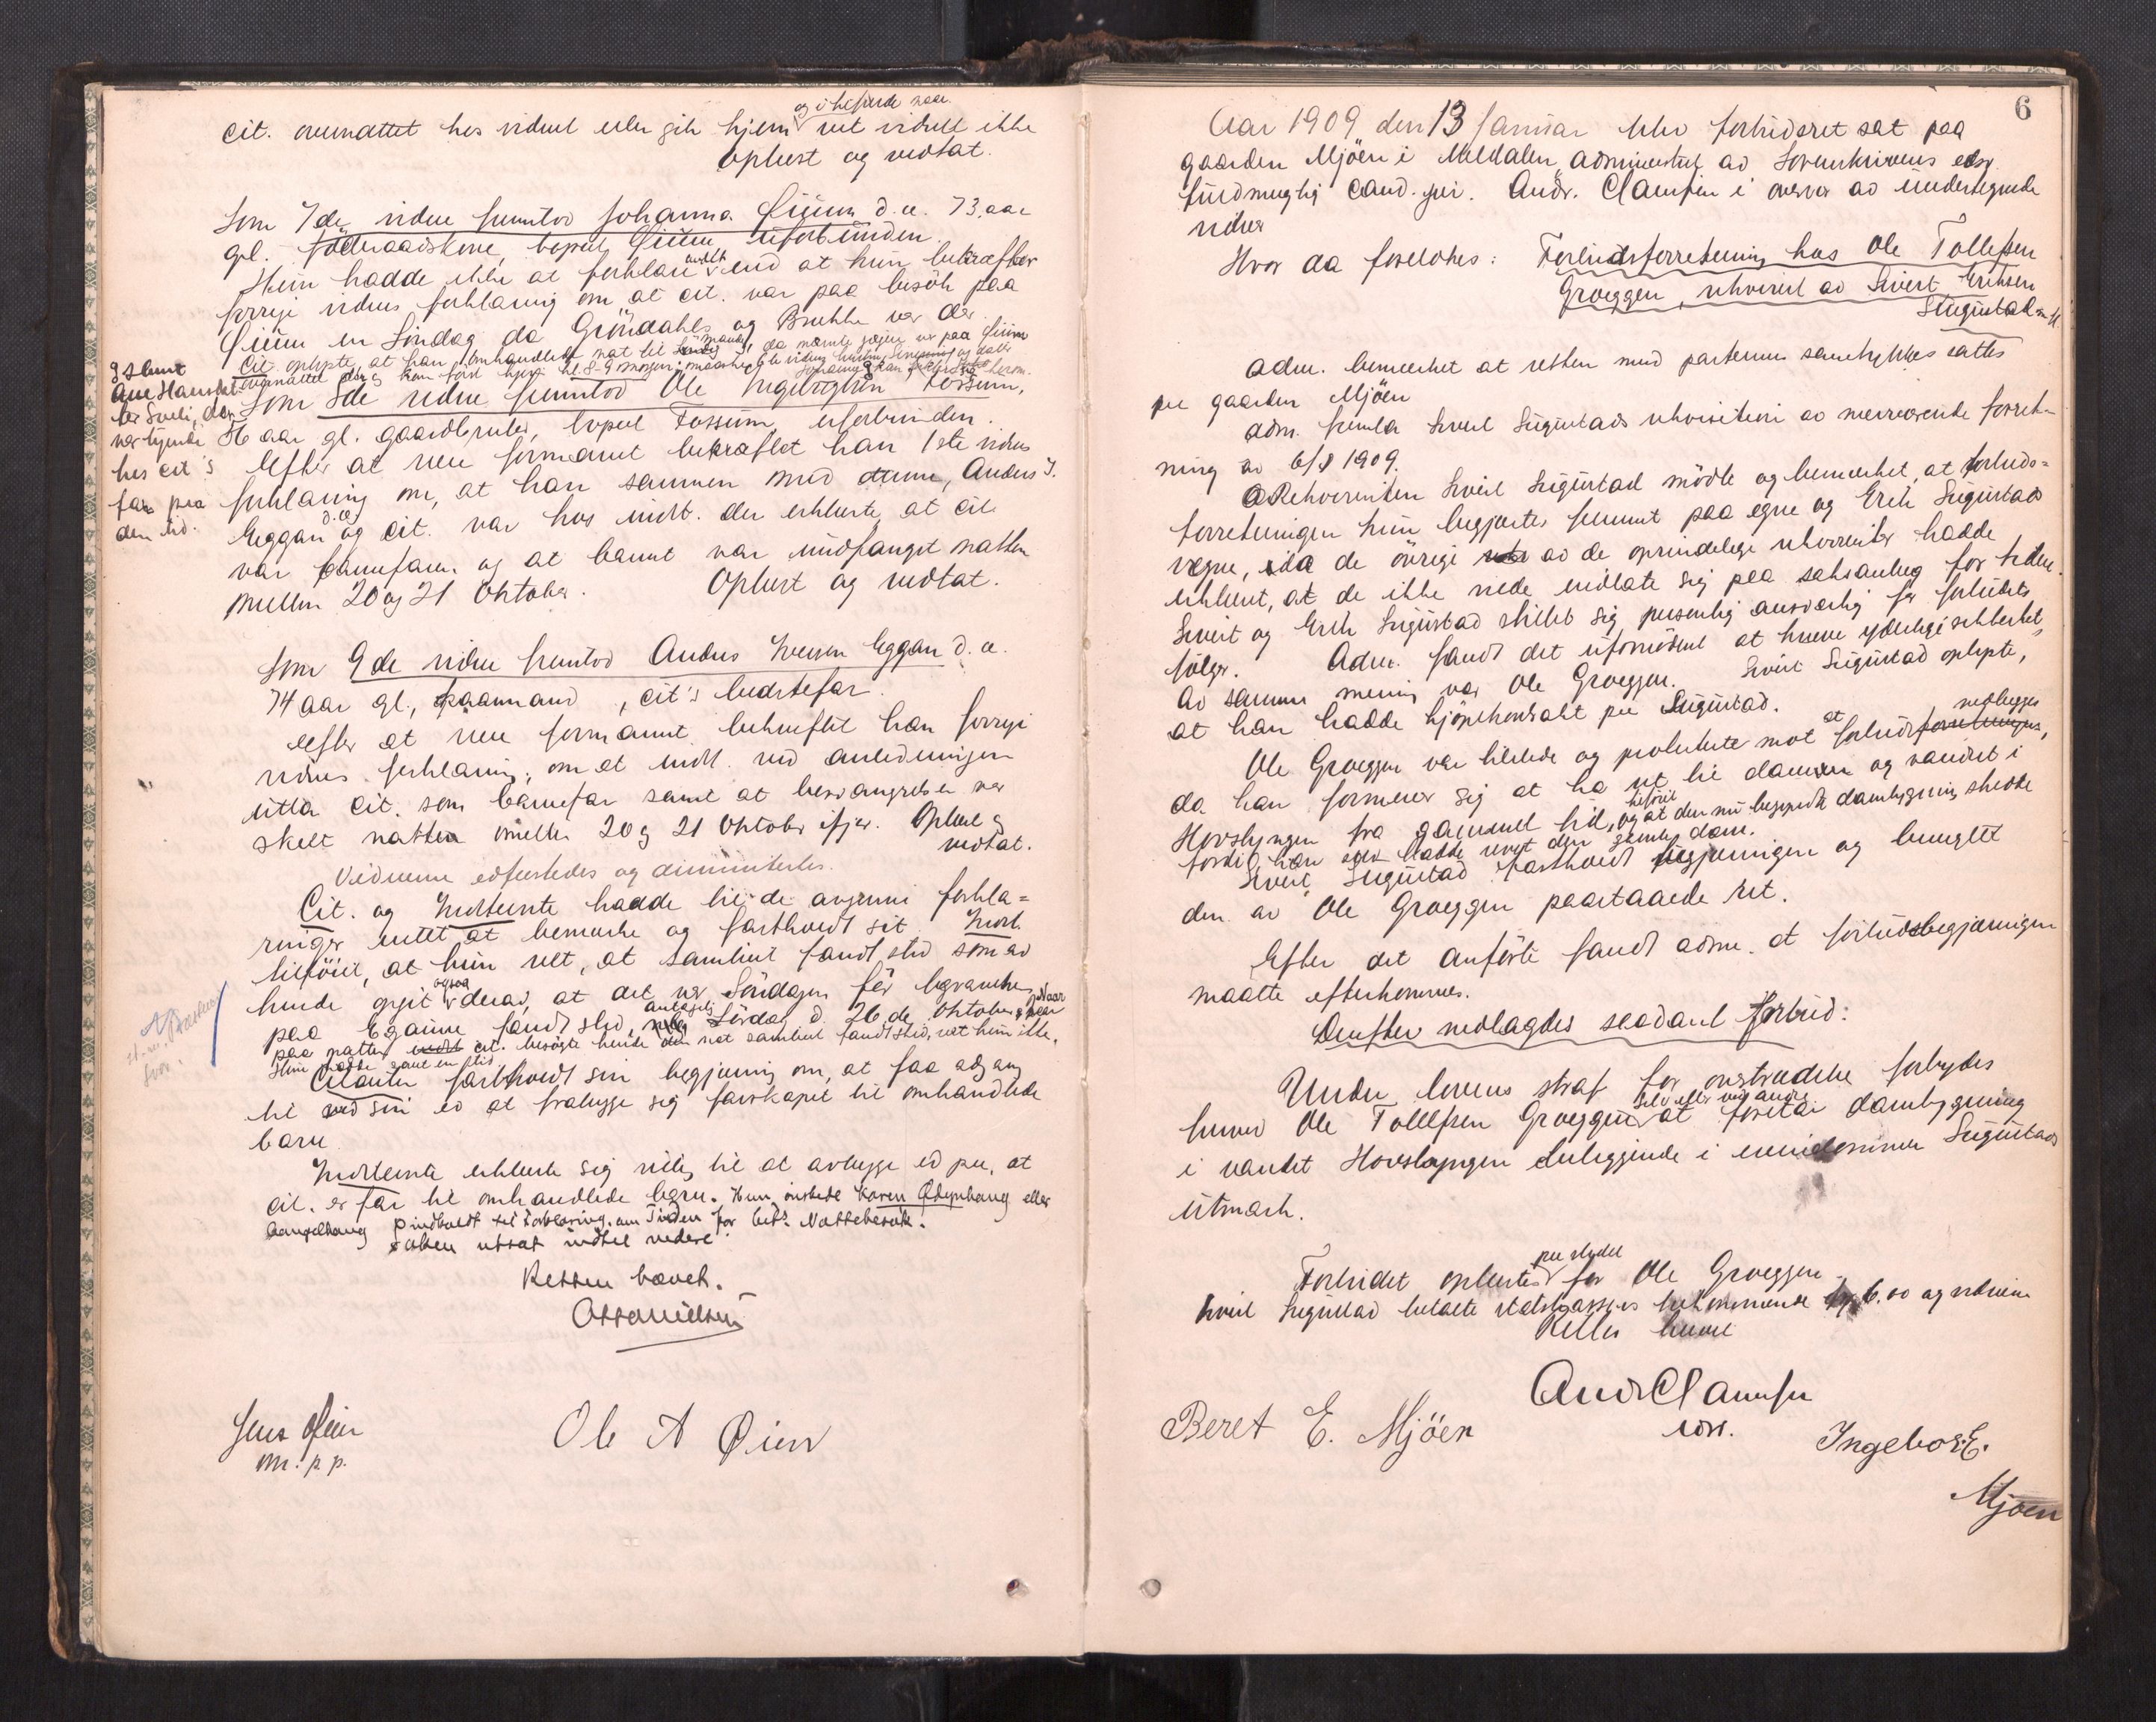 og i tilfælde naar
cit. overnattet hos vidnet eller gik hjem vet vidnet ikke
Oplæst og vedtat.
Som 7de vidne fremstod Johanna Øium d. æ. 73 aar
gl. føderaadskone, bopæl Øium, uforbunden.
Hun hadde ikke at forklare andet end at hun bekræfter
forrige vidnes forklaring om at cit. var paa besøk paa
Øium en Søndag da Gröndahls og Brekke var der.
Cit. oplyste, at han omhandlede nat til mandag, da nævnte gjester var paa Øium
overnattet der og kom først hjem kl. 8-9 morgen
Som 8de vidne fremstod Ole Ingebrigtsen Fossum,
36 aar gl. gaardbruker, bopæl Fossum, uforbunden.
Efter at være formanet bekræftet han 1ste vidnes
forklaring om, at han sammen med denne, Anders I.
Eggan d. æ. og cit. var hos indst. der erklærte at cit.
var barnefaren og at barnet var undfanget natten
mellem 20 og 21 Oktober. Oplæst og vedtat.
Som 9de vidne fremstod Anders Iversen Eggan d. æ.
74 aar gl., kaarmand, cit's bedstefar.
Efter at være formanet bekræftet han forrige
vidnes forklaring, om at indst. ved anledningen
utla cit. som barnefar samt at besvangrelsen var
skett natten mellem 20 og 21 Oktober ifjor. Oplæst og
vedtat.
Vidnerne edfæstedes og dimittertes.
Cit. og Indstevnte hadde til de avgivne forkla=
ringer intet at bemerke og fastholdt sit. Indst.
tilføiet, at hun vet, at samleiet fandt sted som av
hende opgit ogsaa derav, at det var Søndagen før begravelsen
paa Egganne fandt sted, antagelig Lørdag d. 26de Oktober. Naar
paa natten indst cit. besøgte hende den nat samleiet fandt sted, vet hun ikke.
Hun hadde sovet en stid
Citanten fastholdt sin begjæring om, at faa adgang
til ved sin ed at fralægge sig farskapet til omhandlede
barn.
Indstevnte erklærte sig villig til at avlægge ed paa, at
cit. er far til omhandlede barn. Hun ønskede Karen Ødegaard eller
indkaldt til forklaring om Tiden for Cit's Nattebesøk.
saken utsat indtil videre.
Retten hævet.
Otto Nilssen
Jens Øien
m. p. p.
Ole A Øien
samt
Ane Haarstad
der
var tjende
hos cit's
far paa
den tid.
6
Aar 1909 den 13 Januar blev forbudsret sat paa
gaarden Mjøen i Meldalen, administrert av Sorenskriverens edsv.
fuldmægtig Cand. jur. Andr. Clausen i overvær av undertegnede
vidner
Hvor da foretokes: Forbudsforretning hos Ole Tollefsen
Groeggen, rekvirert av Sivert Eriksen
Sugustad m. fl.
Adm. bemerket at retten med parternes samtykke sattes
paa gaarden Mjøen
Adm. fremla Sivert Sugustads rekvisition av nærværende forret-
ning av 6/1 1909.
Rekvirenten Sivert Sugustad mødte og bemerket, at forbuds=
forretningen kun begjærtes fremmet paa egne og Erik Sugustads
vegne, ida de øvrige av de oprindelige rekvirenter hadde
erklært, at de ikke vilde indlate sig paa saksanlæg for tiden.
Sivert og Erik Sugustad stillet sig personlig ansvarlig for forbudets
følger. Adm. fandt det ufornødent at kræve yderligere sikkerhet,
Av samme mening var Ole Groeggen. Sivert Sugustad oplyste,
at han hadde kjøpekontrakt paa Sugustad.
Ole Groeggen var tilstede og protesterte mot at forbud nedlegges,
da han formener sig at ha ret til dammen og vandet i
Hovslyngen fra gammel tid, og at den nu begyndte dambygning skedde tilføiet
fordi han selv hadde revet den gamle dam.
Sivert Sugustad fastholdt begjæringen og benegtet
den av Ole Groeggen paastaaede ret.
Efter det anførte fandt adm. at forbudsbegjæringen
maatte efterkommes.
Derefter nedlagdes saadant forbud:
Under lovens straf for overtrædelse forbydes
herved Ole Tollefsen Groeggen selv eller ved andre at foreta dambygning
i vandet Hovslyngen beliggende i eiendommen Sugustads
utmark.
Forbudet oplæstes paa stedet for Ole Groeggen
Sivert Sugustad betalte statskassens tilkommende kr. 6.00 og vidnerne
Retten hævet
Andr Clausen
edsv.
Beret E. Mjöen
Ingebor. E.
Mjöen